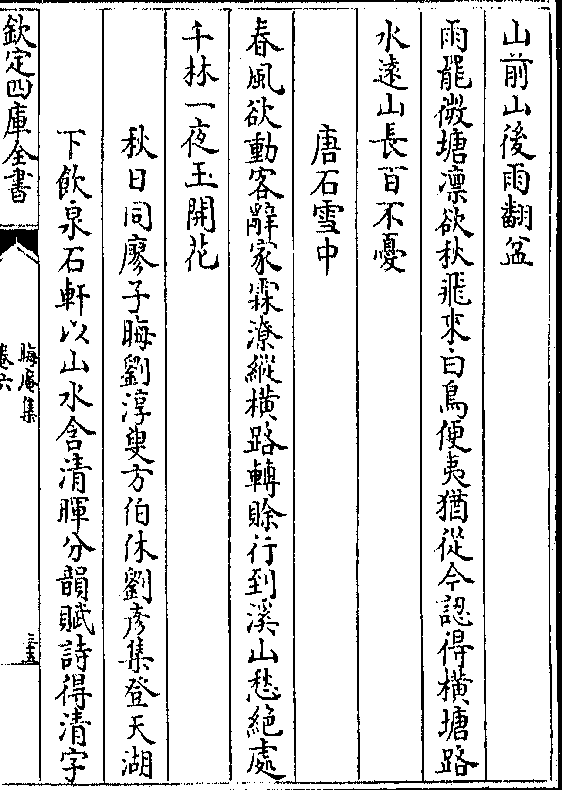 山前山後雨翻盆
雨罷微塘凛欲秋飛來白鳥便夷猶從今認得橫塘路
水逺山長百不憂
唐石雪中
春風欲動客辭家霖潦縱橫路轉賒行到溪山愁絶處
千林一夜玉開花
秋日同廖子晦劉淳叟方伯休劉彦集登天湖
下飲泉石軒以山水含清暉分韻賦詩得清字
欽定四庫全書
晦庵集
卷六
三五